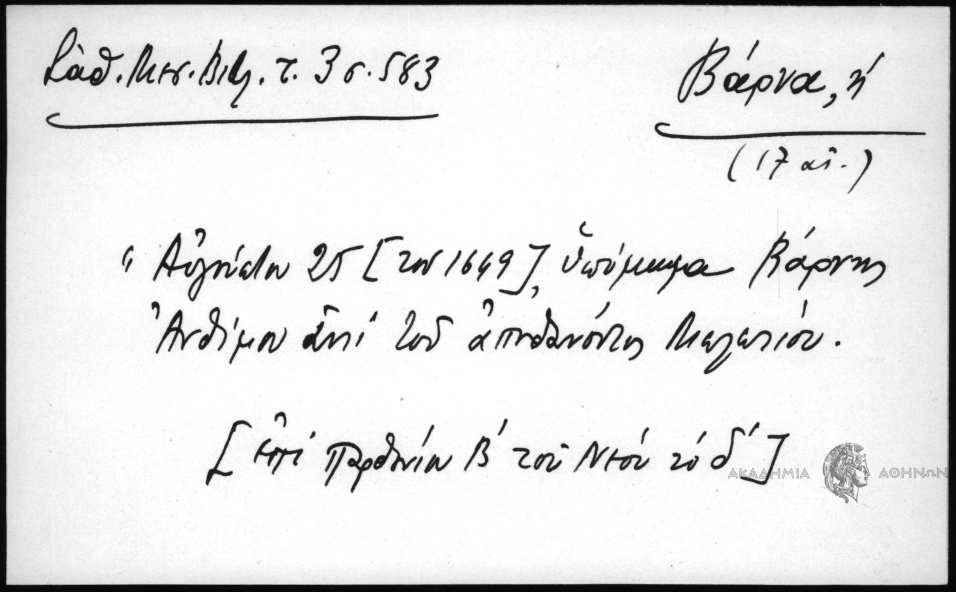 Σάθ. Μεσ. Βιβ. τ. 3 σ. 583
Βάρνα, ἡ
(17 αἰ.)
"Αὐγούστου 25 [του 1649], ὑπόμνημα Βάρνης
Ἀνθίμου ἀντί τοῦ ἀποθανόντος Μελετίου.
[ἐπί Παρθενίου Β' τοῦ Νέου τό δ']
ΑΚΑΔΗΜΙΑ ΑΘΗΝΩΝ